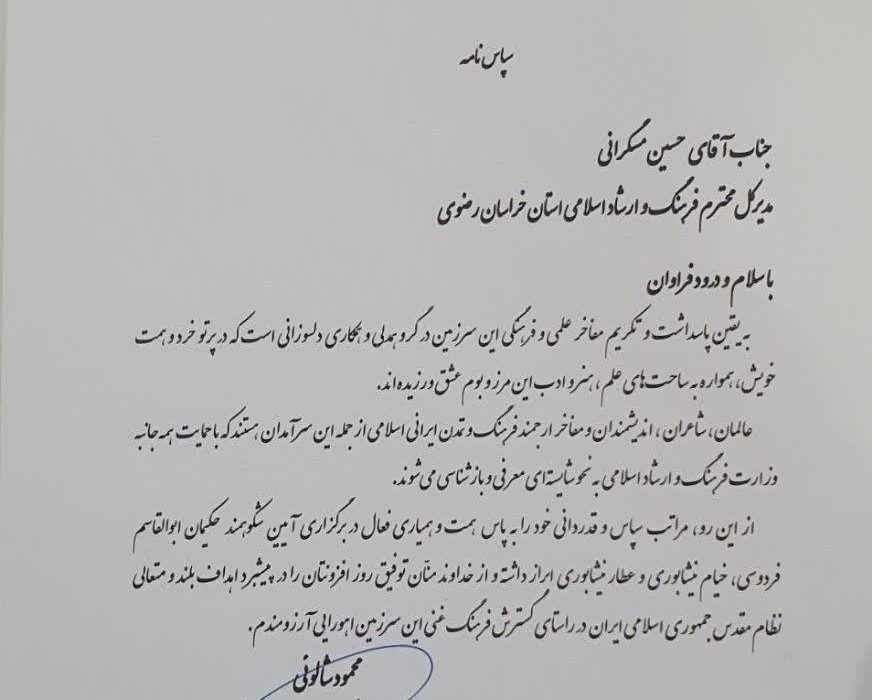 سپاس نامه
جناب آقای حسین مسگرانی
مدیرکل محترم فرهنگ و ارشاد اسلامی استان خراسان رضوی
با سلام و درود فراوان
به یقین پاسداشت و تکریم مفاخر علمی و فرهنگی این سرزمین در گرو همدلی و همکاری دلسوزانی است که در پرتو خرد و همت
خویش، همواره به ساحت‌های علم، هنر و ادب این مرز و بوم عشق ورزیده‌اند.
عالمان، شاعران، اندیشمندان و مفاخر ارجمند فرهنگ و تمدن ایرانی اسلامی از جمله این سرآمدان هستند که با حمایت همه جانبه
وزارت فرهنگ و ارشاد اسلامی به نحو شایسته‌ای معرفی و بازشناسی می‌شوند.
از این رو، مراتب سپاس و قدردانی خود را به پاس همت و همیاری فعال در برگزاری آیین شکوهمند حکیمان ابوالقاسم
فردوسی، خیام نیشابوری و عطار نیشابوری ابراز داشته و از خداوند منّان توفیق روز افزونتان را در پیشبرد اهداف بلند و متعالی
نظام مقدس جمهوری اسلامی ایران در راستای گسترش فرهنگ غنی این سرزمین اهورایی آرزومندم.
محمود شالویی